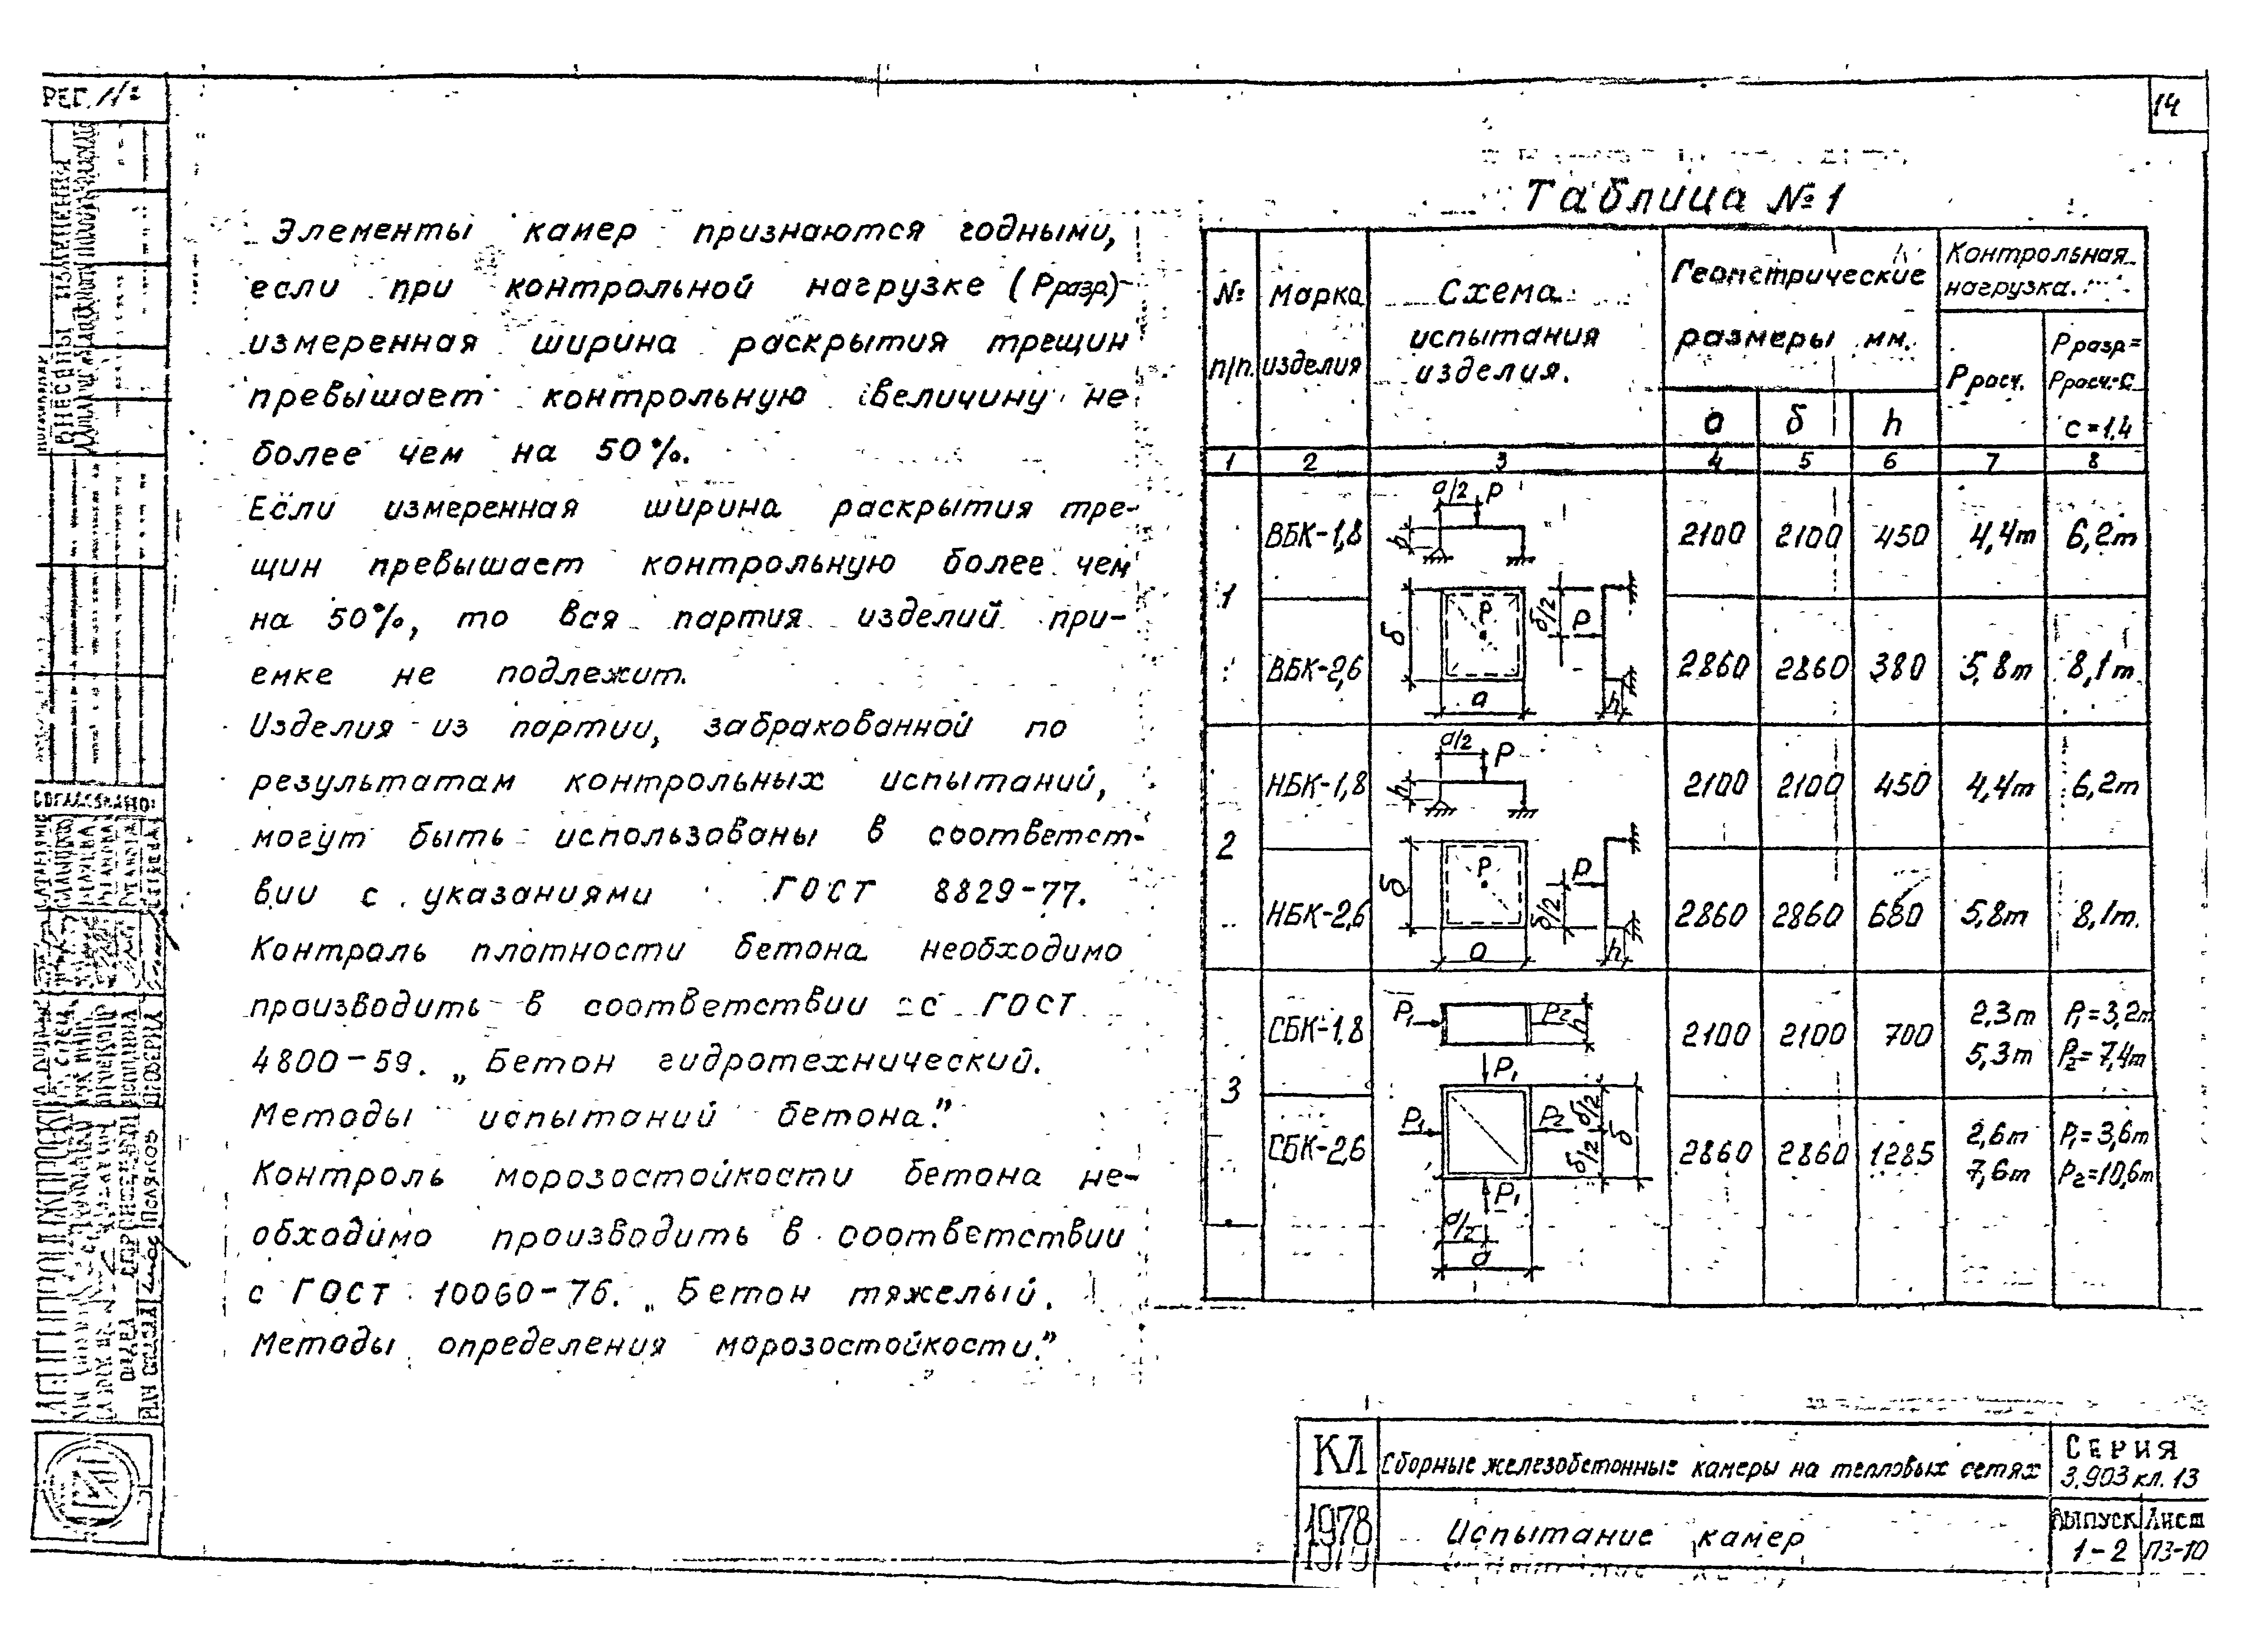 РЕГ. №
14
Элементы камер признаются годными,
если при контрольной нагрузке (Рразр.)
измеренная ширина раскрытия трещин
превышает контрольную величину не
более чем на 50%.
Если измеренная ширина раскрытия тре-
щин превышает контрольную более чем
на 50%, то вся партия изделий при-
емке не подлежит.
Изделия из партии, забракованной по
результатам контрольных испытаний,
могут быть использованы в соответст-
вии с указаниями ГОСТ 8829-77.
Контроль плотности бетона необходимо
производить в соответствии с ГОСТ
4800-59. „Бетон гидротехнический.
Методы испытаний бетона."
Контроль морозостойкости бетона не-
обходимо производить в соответствии
с ГОСТ 10060-76. „Бетон тяжелый.
Методы определения морозостойкости."
Таблица №1
№ п/п. Марка изделия Схема испытания изделия. Геометрические размеры мм. Контрольная нагрузка.
а б h Ррасч. Рразр.= Ррасч.·С С=1,4
1 2 3 4 5 6 7 8
1
ВБК-1,8 2100 2100 450 4,4т 6,2т
ВБК-2,6 2860 2860 380 5,8т 8,1т
а/2 Р
h
б Р б/2 Р
а h
2
НБК-1,8 2100 2100 450 4,4т 6,2т
НБК-2,6 2860 2860 680 5,8т 8,1т.
а/2 Р
h
б Р б/2 Р
а h
3
СБК-1,8 2100 2100 700 2,3т 5,3т Р1=3,2т Р2=7,4т
СБК-2,6 2860 2860 1285 2,6т 7,6т Р1=3,6т Р2=10,6т
Р1 Р2 h
Р1
Р1 Р2 б/2 б/2 б
Р1
а/2
а
СОГЛАСОВАНО:
ВНЕСЕНЫ ИЗМЕНЕНИЯ
Поляков
КЛ Сборные железобетонные камеры на тепловых сетях Серия 3.903 кл. 13
1978 Испытание камер Выпуск 1-2 Лист ПЗ-10